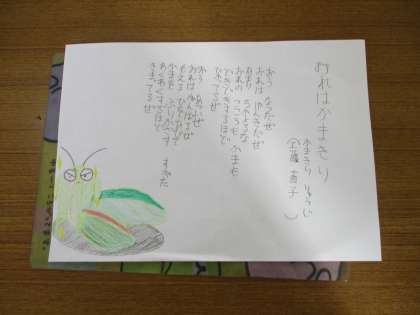 おれはかまきり
かまきり りゅうじ
（工藤 直子）
おう なつだぜ
おれは げんきだぜ
あまり ちかよるな
おれの こころも かまも
どきどきするほど
ひかってるぜ
おう あついぜ
おれは がんばるぜ
もえる ひをあびて
かまを ふりかざす すがた
わくわくするほど
きまってるぜ